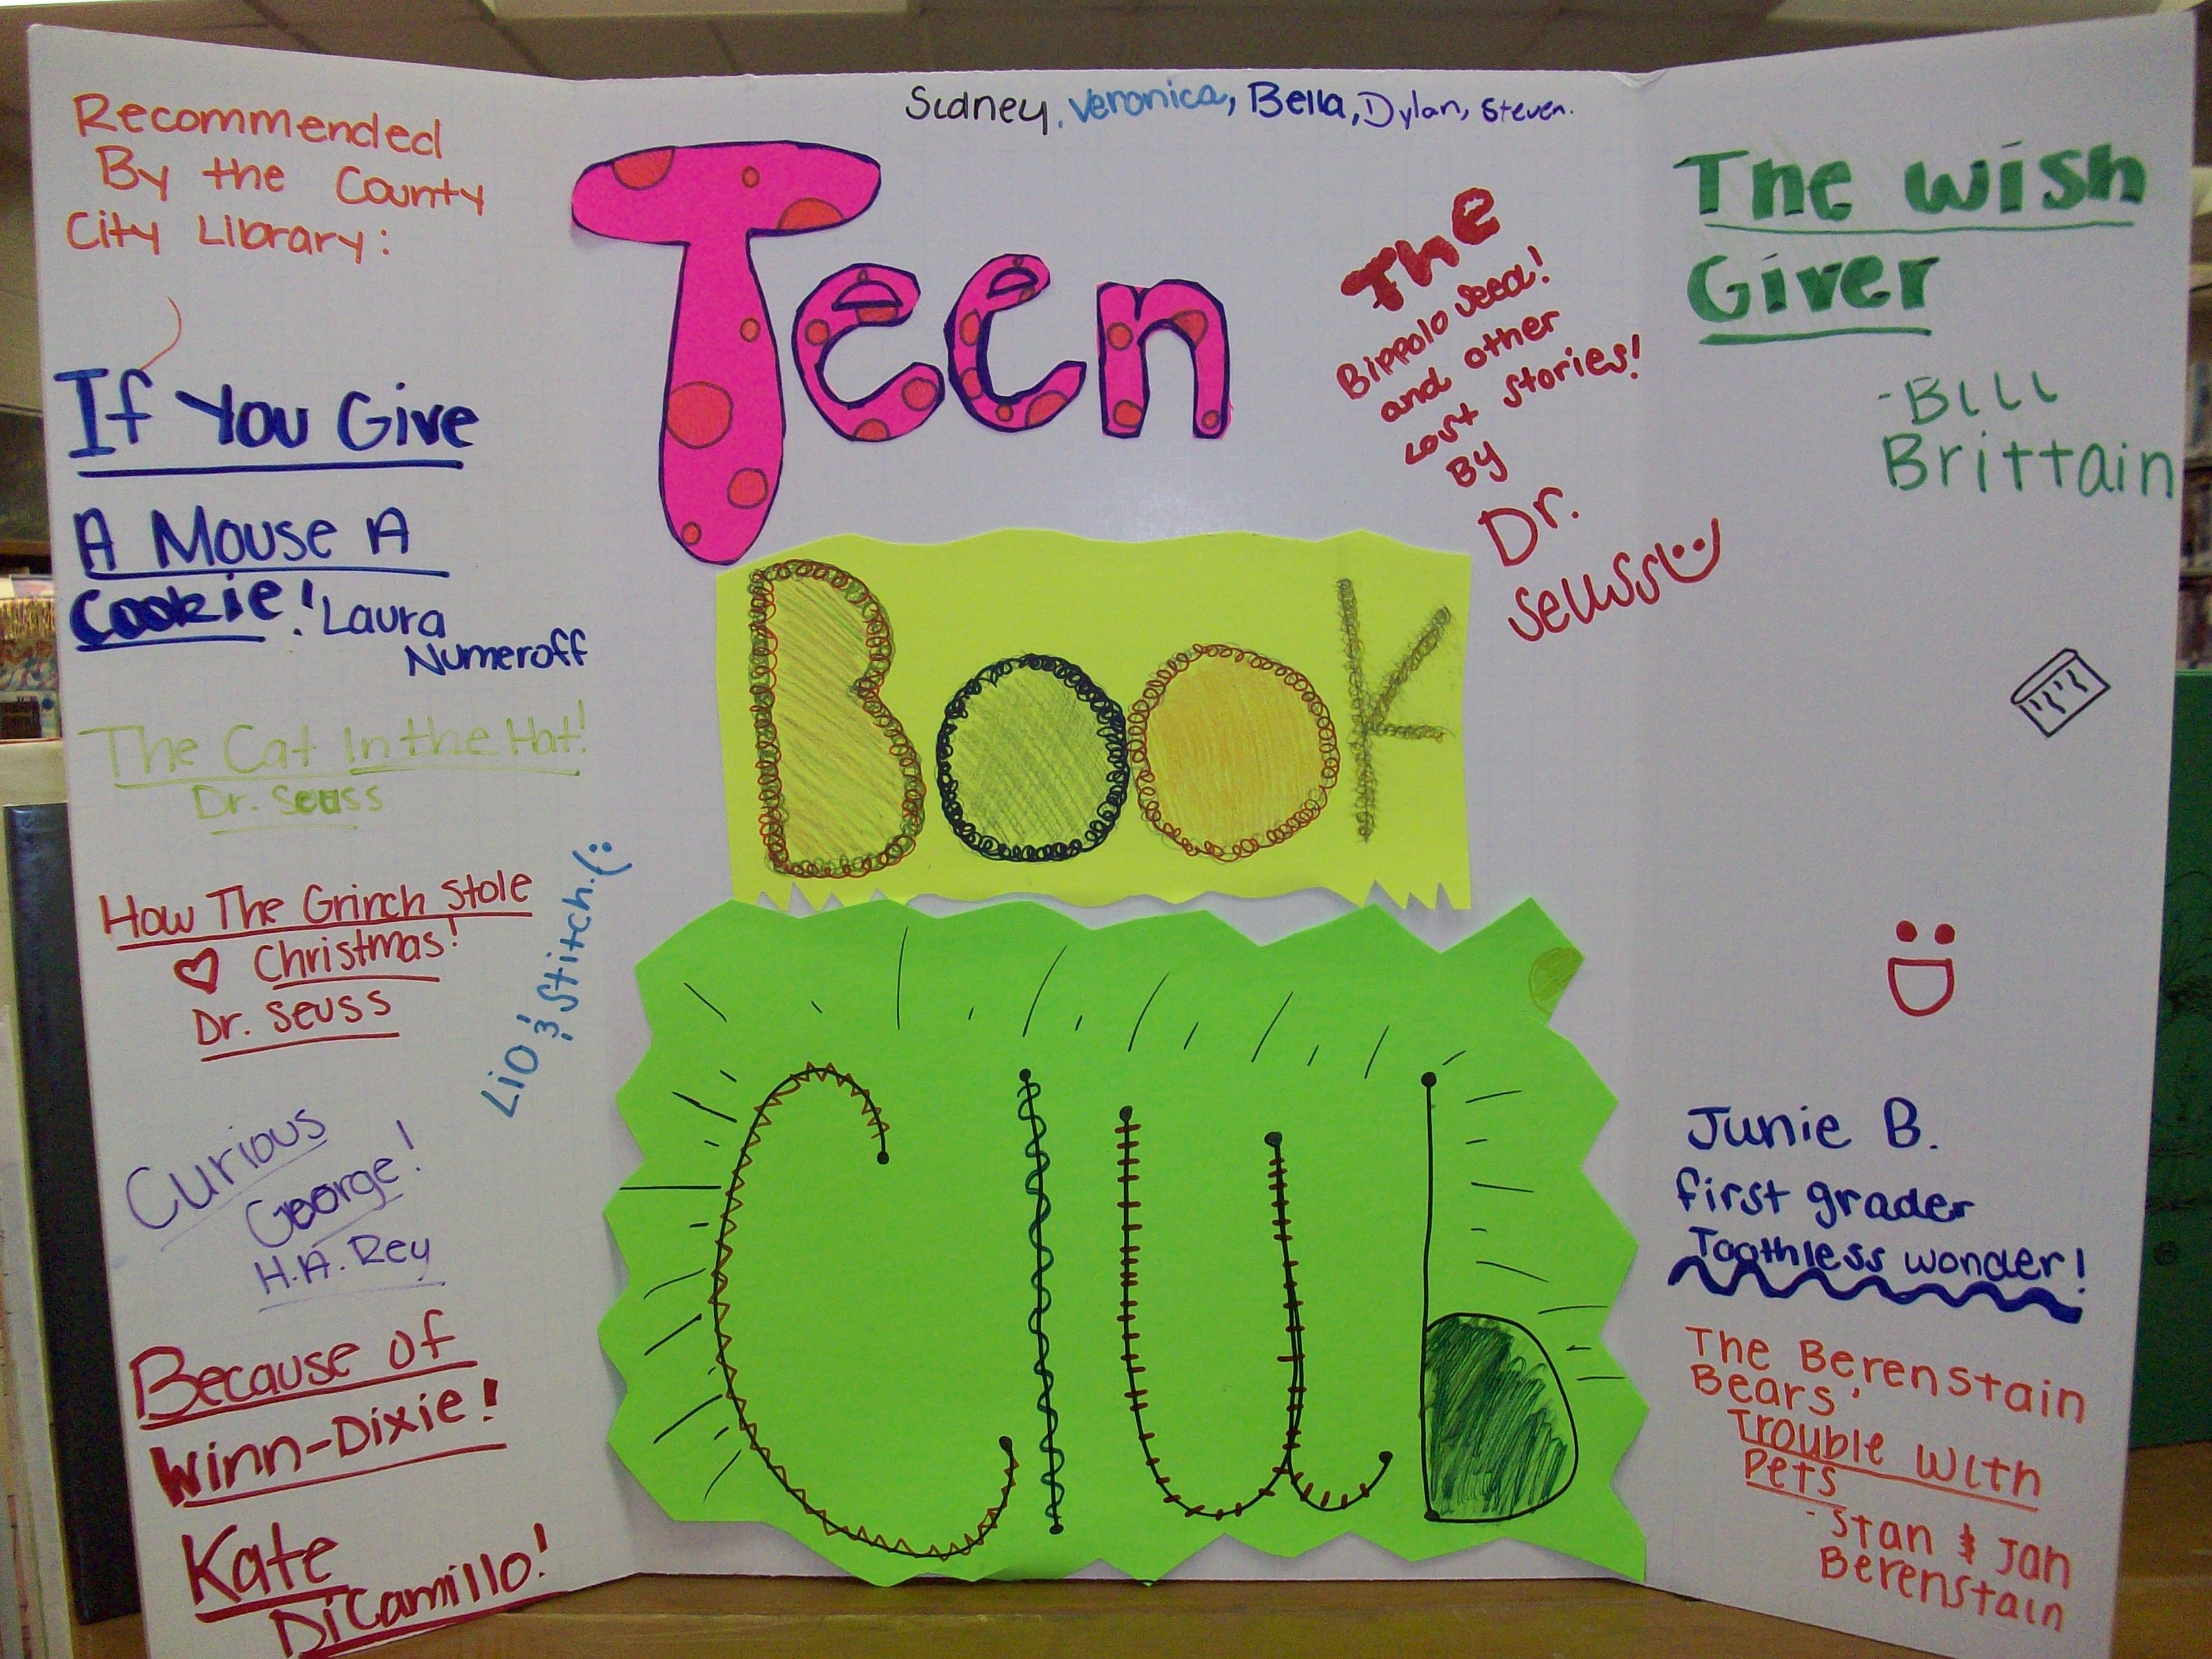 Recommended
By the County
City Library:
If You Give
A Mouse A
Cookie! Laura
Numeroff
The Cat In the Hat!
Dr. Seuss
How The Grinch Stole
Christmas!
Dr. Seuss
Lio & Stitch. (:
Curious
George!
H.A. Rey
Because of
Winn-Dixie!
Kate
DiCamillo!
Sidney, Veronica, Bella, Dylan, Steven.
Teen
Book
Club
The
Bippolo seed!
and other
Lost stories!
By
Dr.
Seuss
The Wish
Giver
-Bill
Brittain
Junie B.
first grader
Toothless wonder!
The Berenstain
Bears'
Trouble With
Pets
-Stan & Jan
Berenstain